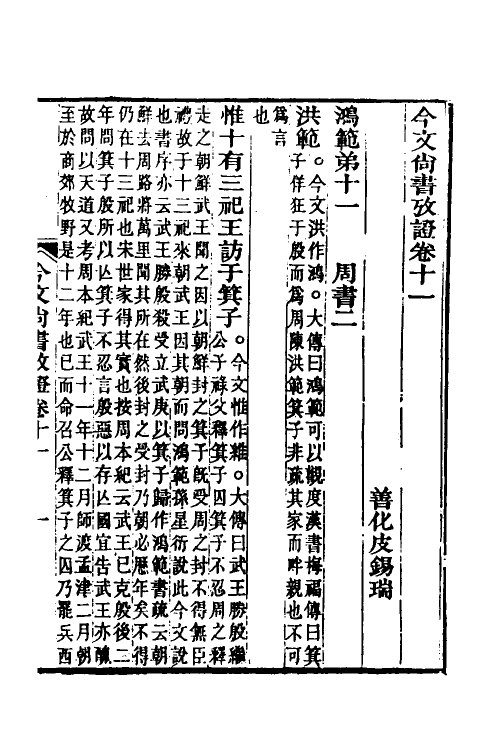 今文尙書攷證卷十一
善化皮錫瑞
鴻範弟十一　周書二
洪範。今文洪作鴻。大傳曰鴻範可以觀度漢書梅福傳曰箕
子佯狂于殷而爲周陳洪範箕子非疏其家而畔親也不可
爲言
也
惟十有三祀王訪于箕子。今文惟作維。大傳曰武王勝殷繼
公子祿父釋箕子囚箕子不忍周之釋
走之朝鮮武王聞之因以朝鮮封之箕子旣受周之封不得無臣
禮故于十三祀來朝武王因其朝而問鴻範孫星衍說此今文說
也書序亦云武王勝殷殺受立武庚以箕子歸作鴻範書疏云朝
鮮去周路將萬里聞其所在然後封之受封乃朝必歷年矣不得
仍在十三祀也宋世家得其實也按周本紀云武王已克殷後二
年問箕子殷所以亾箕子不忍言殷惡以存亾國宜告武王亦醜
故問以天道又考周本紀武王十一年十二月師渡孟津二月朝
至於商郊牧野是十二年也已而命召公釋箕子之囚乃罷兵西
今文尙書攷證卷十一　一